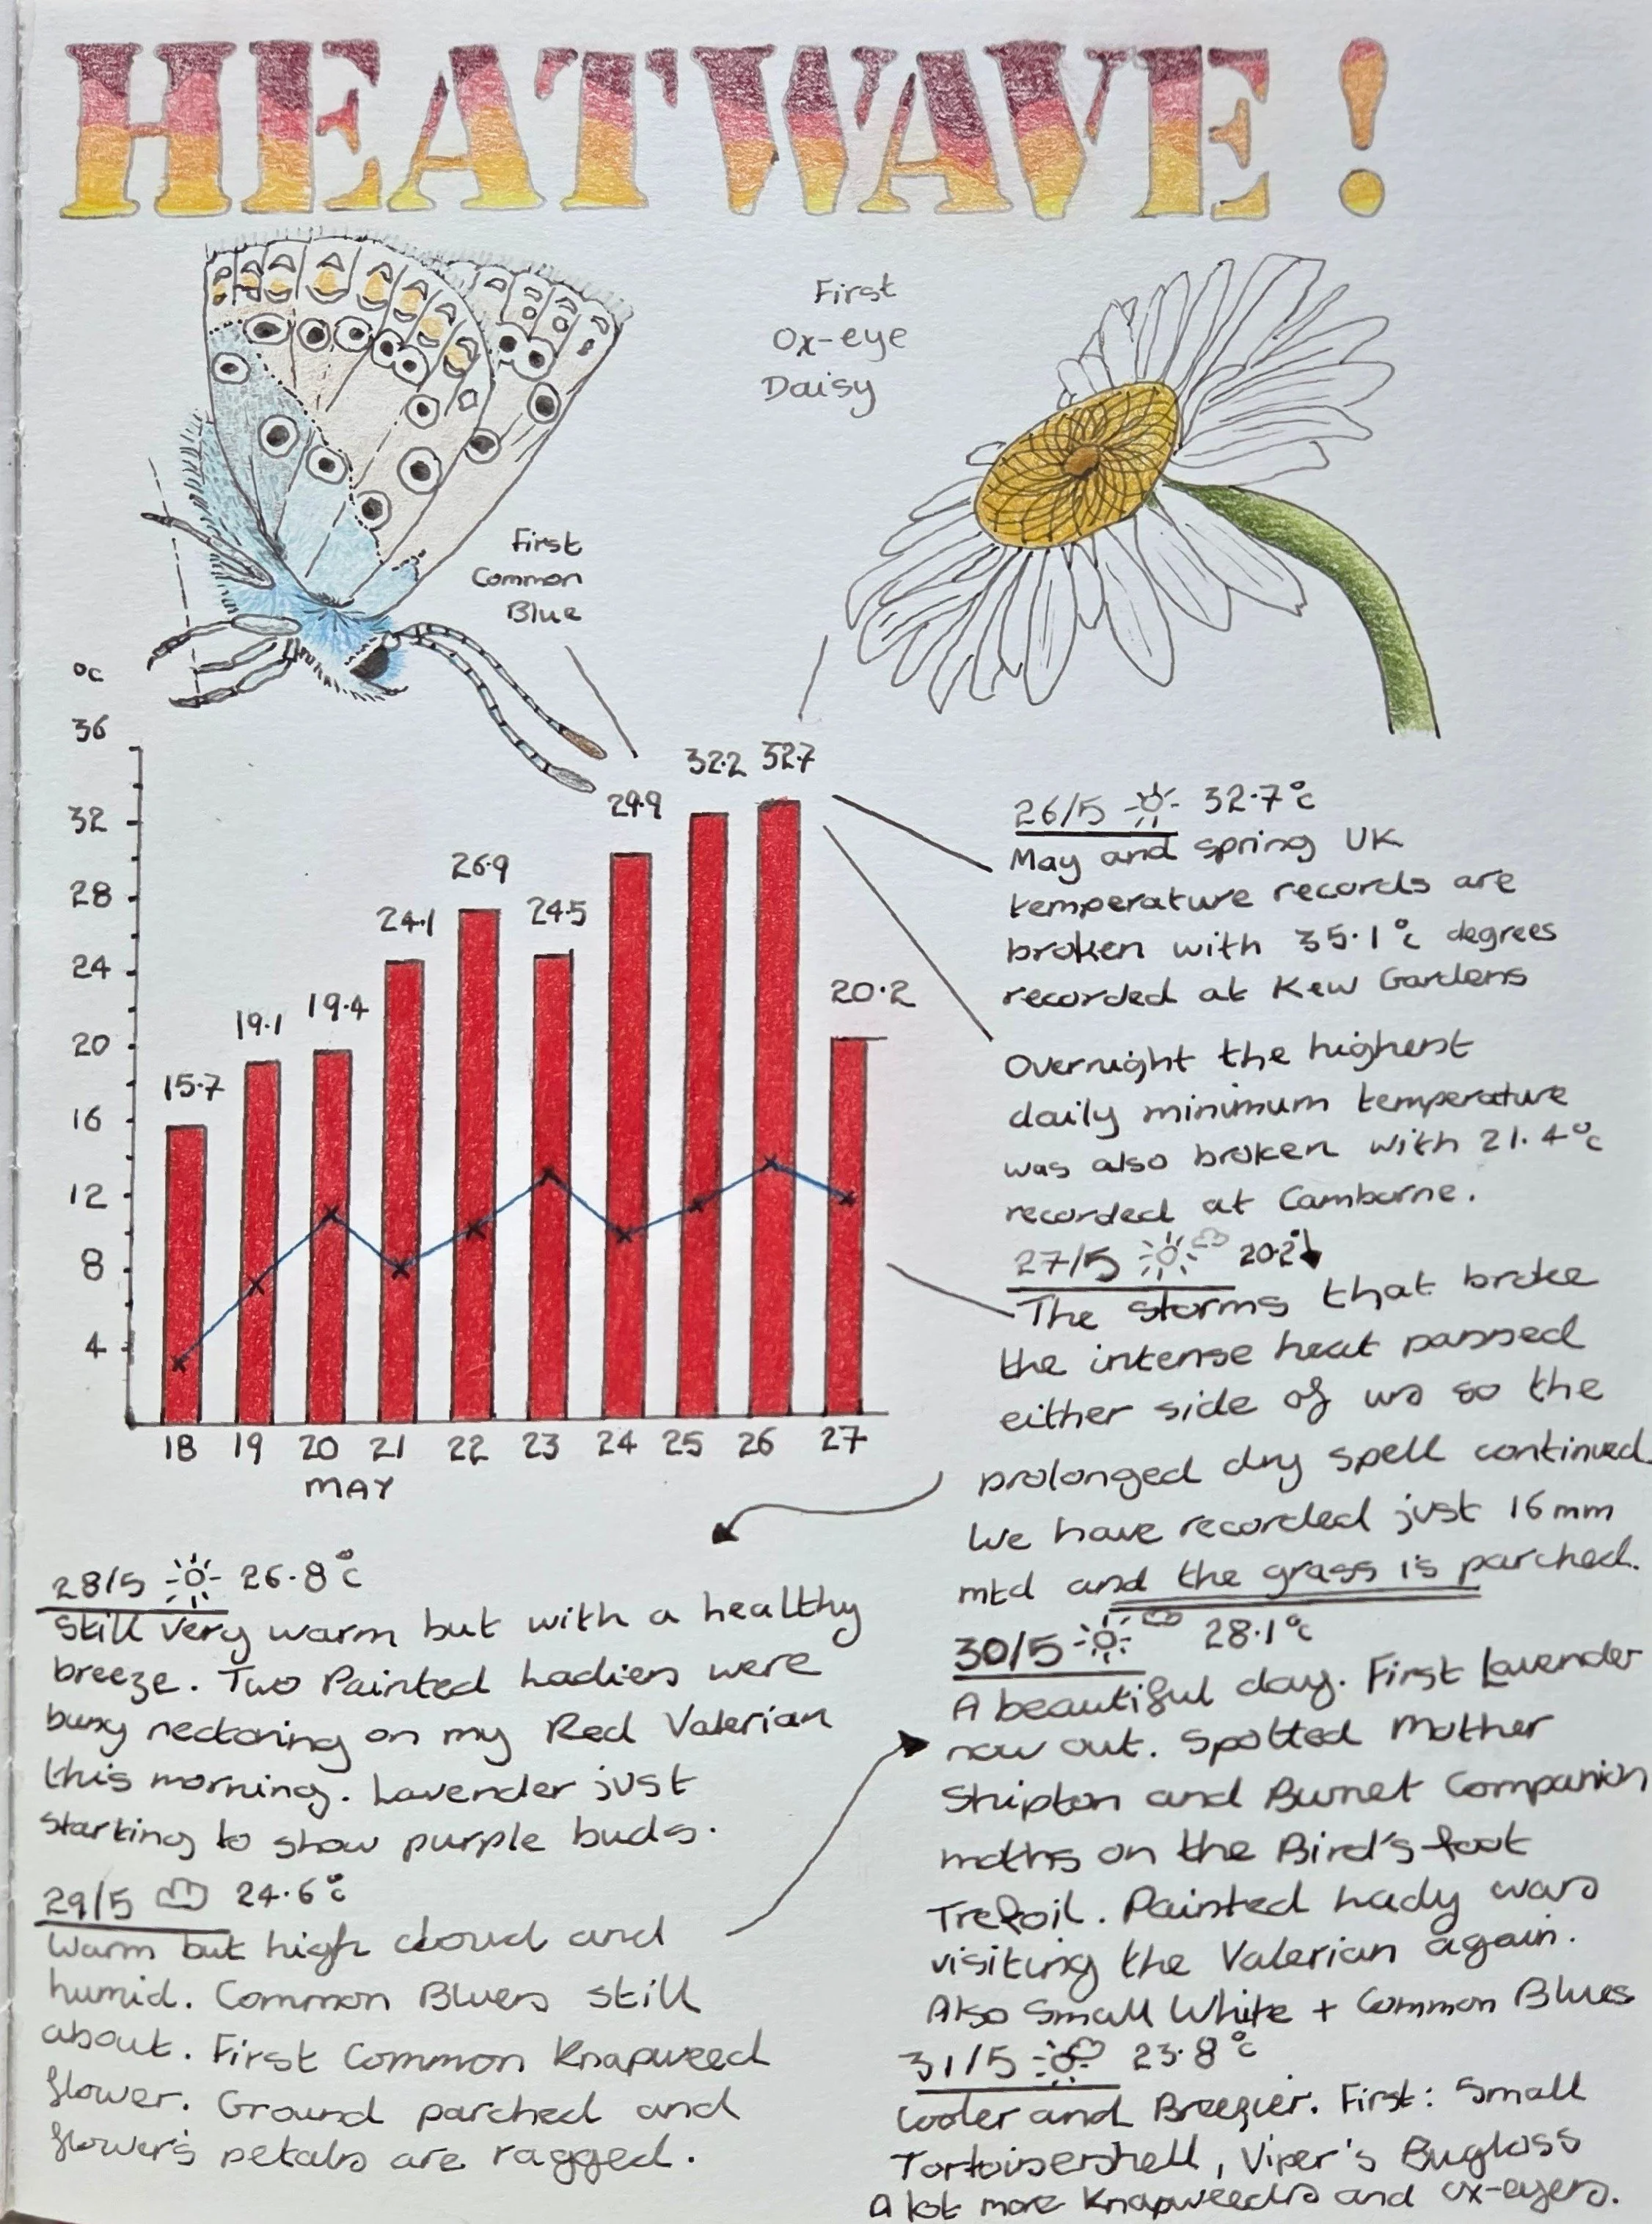 HEATWAVE!
First
Ox-eye
Daisy
First
Common
Blue
°c
36
32
28
24
20
16
12
8
4
15.7
19.1
19.4
24.1
26.9
24.5
29.9
32.2
32.7
20.2
18 19 20 21 22 23 24 25 26 27
MAY
26/5 32.7°c
May and spring UK
temperature records are
broken with 35.1°c degrees
recorded at Kew Gardens
Overnight the highest
daily minimum temperature
was also broken with 21.4°c
recorded at Camborne.
27/5 20.2
The storms that broke
the intense heat passed
either side of us so the
prolonged dry spell continued.
We have recorded just 16mm
mtd and the grass is parched.
28/5 26.8°c
Still very warm but with a healthy
breeze. Two Painted Ladies were
busy nectaring on my Red Valerian
this morning. Lavender just
starting to show purple buds.
29/5 24.6°c
Warm but high cloud and
humid. Common Blues still
about. First Common Knapweed
flower. Ground parched and
flower's petals are ragged.
30/5 28.1°c
A beautiful day. First Lavender
now out. Spotted Mother
Shipton and Burnet Companion
moths on the Bird's-foot
Trefoil. Painted Lady was
visiting the Valerian again.
Also Small White + Common Blues
31/5 23.8°c
Cooler and Breezier. First: Small
Tortoiseshell, Viper's Bugloss
A lot more Knapweeds and ox-eyes.